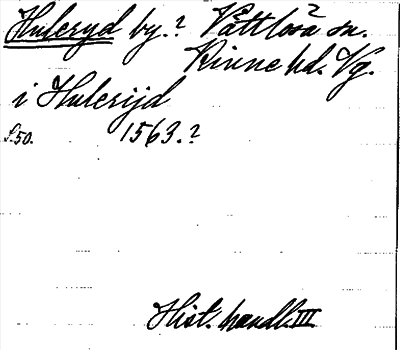 Huleryd by.? Våttlosa? sn.
Kinne hd. Vg.
i Hulerijd
S.50. 1563.?
Hist. handl. III